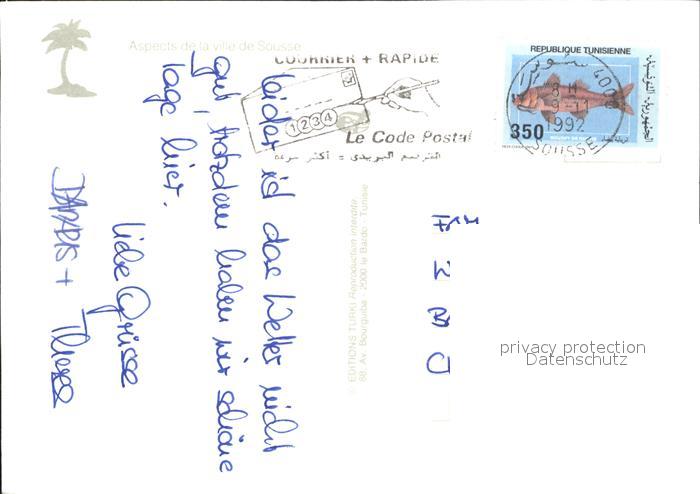 Aspects de la ville de Sousse
COURRIER + RAPIDE
1234
Le Code Postal
الترسيم البريدي = أكثر سرعة
REPUBLIQUE TUNISIENNE
الجمهورية التونسية
350
سوسة 4000
8 H
9-11
1992
SOUSSE
leider ist das Wetter nicht
gut, trotzdem haben wir schöne
Tage hier.
liebe Grüsse
© EDITIONS TURKI Reproduction interdite
68, Av. Bourguiba - 2000 le Bardo - Tunisie
privacy protection
Datenschutz